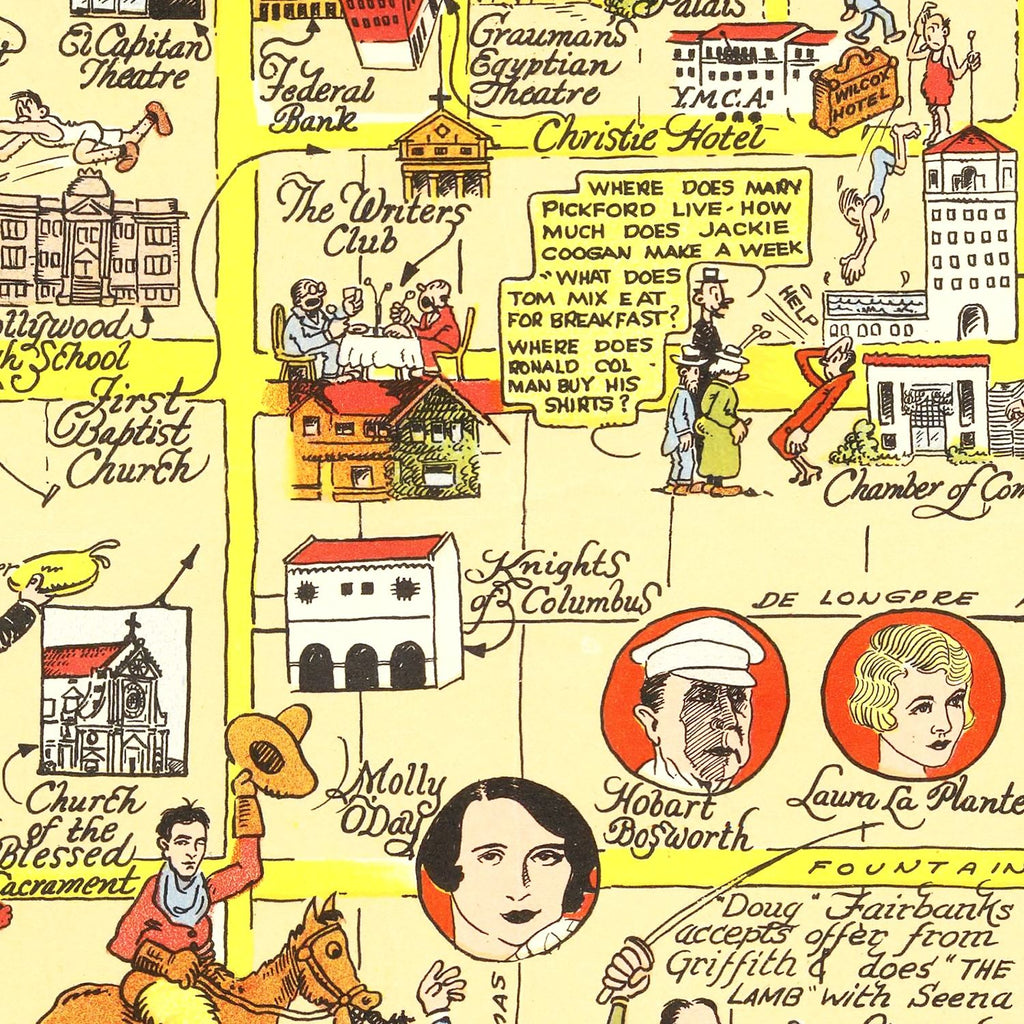 El Capitan
Theatre
Federal
Bank
Palais
Graumans
Egyptian
Theatre
Y.M.C.A.
WILCOX
HOTEL
Christie Hotel
The Writers
Club
WHERE DOES MARY
PICKFORD LIVE-HOW
MUCH DOES JACKIE
COOGAN MAKE A WEEK
"WHAT DOES
TOM MIX EAT
FOR BREAKFAST?
WHERE DOES
RONALD COL-
MAN BUY HIS
SHIRTS?
HELP
ollywood
gh School
First
Baptist
Church
Chamber of Com
Knights
of Columbus
DE LONGPRE
Church
of the
Blessed
Sacrament
Molly
O'Day
Hobart
Bosworth
Laura La Plante
FOUNTAIN
"Doug" Fairbanks
accepts offer from
Griffith & does "THE
LAMB" with Seena
MAS